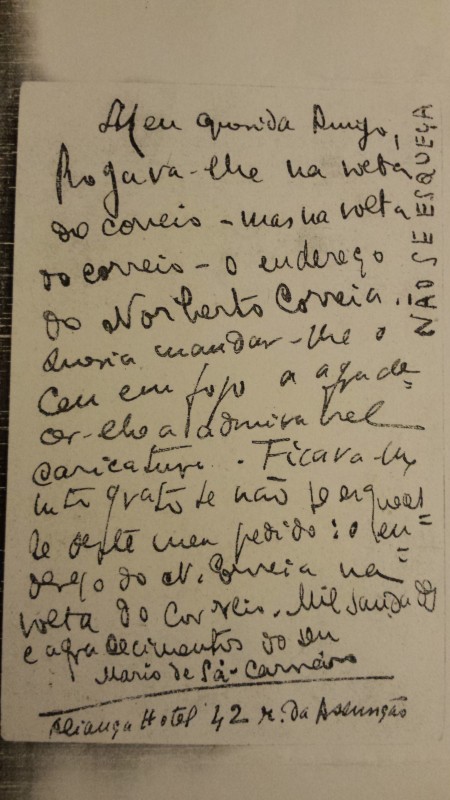 Meu querido Amigo,
Rogava-lhe na volta
do correio - mas na volta
do correio - o endereço
do Norberto Correia.
Queria mandar-lhe o
Ceu em fogo a agrade=
cer-lhe a admiravel
caricatura. Ficava-lhe
mto grato se não se esqueces
se deste meu pedido: o en=
dereço do N. Correia na
volta do Correio. Mil saudades
e agradecimentos do seu
Mario de Sá-Carneiro
Aliança Hotel 42 r. da Assunção
NÃO SE ESQUEÇA